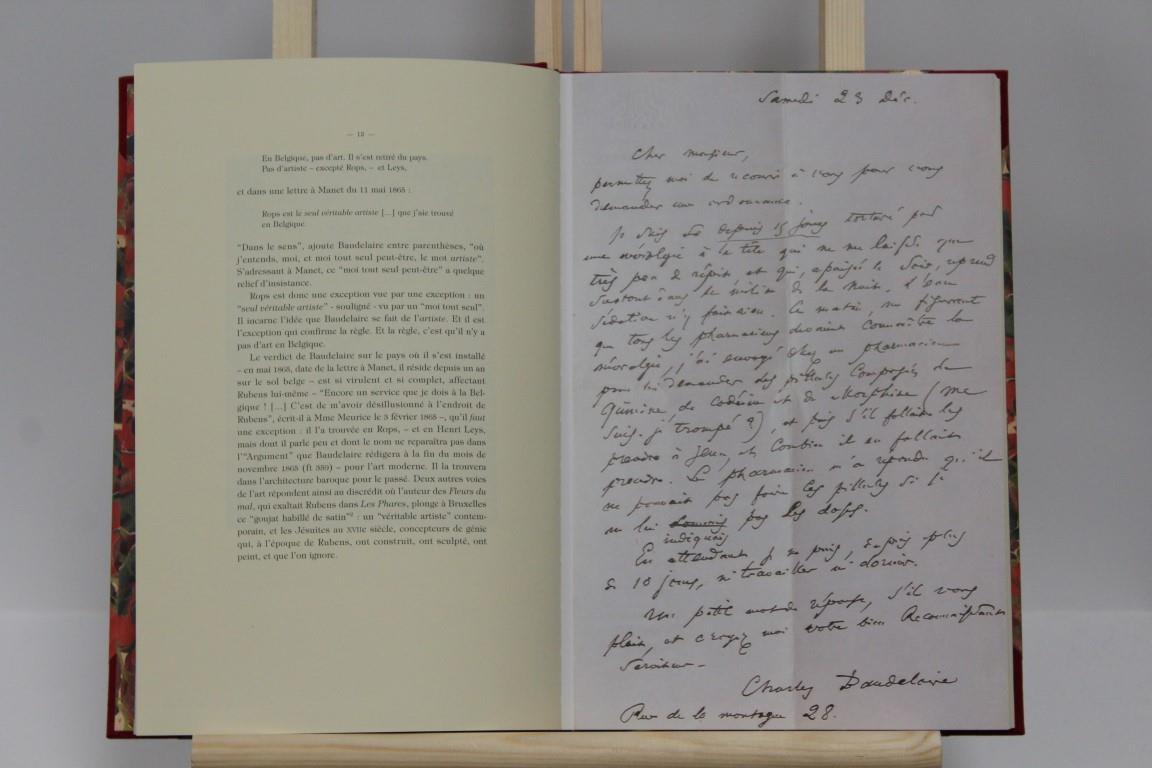 — 12 —
En Belgique, pas d'art. Il s'est retiré du pays.
Pas d'artiste – excepté Rops, – et Leys,
et dans une lettre à Manet du 11 mai 1865 :
Rops est le seul véritable artiste [...] que j'aie trouvé
en Belgique
"Dans le sens", ajoute Baudelaire entre parenthèses, "où
j'entends, moi, et moi tout seul peut-être, le mot artiste".
S'adressant à Manet, ce "moi tout seul peut-être" a quelque
relief d'insistance.
Rops est donc une exception vue par une exception : un
"seul véritable artiste" - souligné - vu par un "moi tout seul".
Il incarne l'idée que Baudelaire se fait de l'artiste. Et il est
l'exception qui confirme la règle. Et la règle, c'est qu'il n'y a
pas d'art en Belgique.
Le verdict de Baudelaire sur le pays où il s'est installé
– en mai 1865, date de la lettre à Manet, il réside depuis un an
sur le sol belge – est si virulent et si complet, affectant
Rubens lui-même – "Encore un service que je dois à la Bel-
gique ! [...] C'est de m'avoir désillusionné à l'endroit de
Rubens", écrit-il à Mme Meurice le 3 février 1865 –, qu'il faut
une exception : il l'a trouvée en Rops, – et en Henri Leys,
mais dont il parle peu et dont le nom ne reparaîtra pas dans
l'"Argument" que Baudelaire rédigera à la fin du mois de
novembre 1865 (ft 359) – pour l'art moderne. Il la trouvera
dans l'architecture baroque pour le passé. Deux autres voies
de l'art répondent ainsi au discrédit où l'auteur des Fleurs du
mal, qui exaltait Rubens dans Les Phares, plonge à Bruxelles
ce "goujat habillé de satin"² : un "véritable artiste" contem-
porain, et les Jésuites au XVIIe siècle, concepteurs de génie
qui, à l'époque de Rubens, ont construit, ont sculpté, ont
peint, et que l'on ignore.
Samedi 23 Déc.
Cher monsieur,
permettez moi de recourir à vous pour vous
demander une ordonnance.
Je suis depuis 15 jours torturé par
une névralgie à la tête qui ne me laisse que
très peu de répit et qui, apaisée le soir, reprend
surtout vers le milieu de la nuit. L'eau
sédative n'y fait rien. Ce matin, me figurant
que tous les pharmaciens devaient connaître la
névralgie, j'ai envoyé chez un pharmacien
pour lui demander des pillules composées de
Quinine, de Codéine et de Morphine (me
suis-je trompé ?), et puis s'il fallait les
prendre à jeun, et combien il en fallait
prendre. Le pharmacien m'a répondu qu'il
ne pouvait pas faire les pillules si je
ne lui donnais pas les doses.
indiquais
En attendant je ne puis, depuis plus
de 10 jours, ni travailler ni dormir.
Un petit mot de réponse, s'il vous
plaît, et croyez moi votre bien Reconnaissant
Serviteur –
Charles Baudelaire
Rue de la montagne 28.